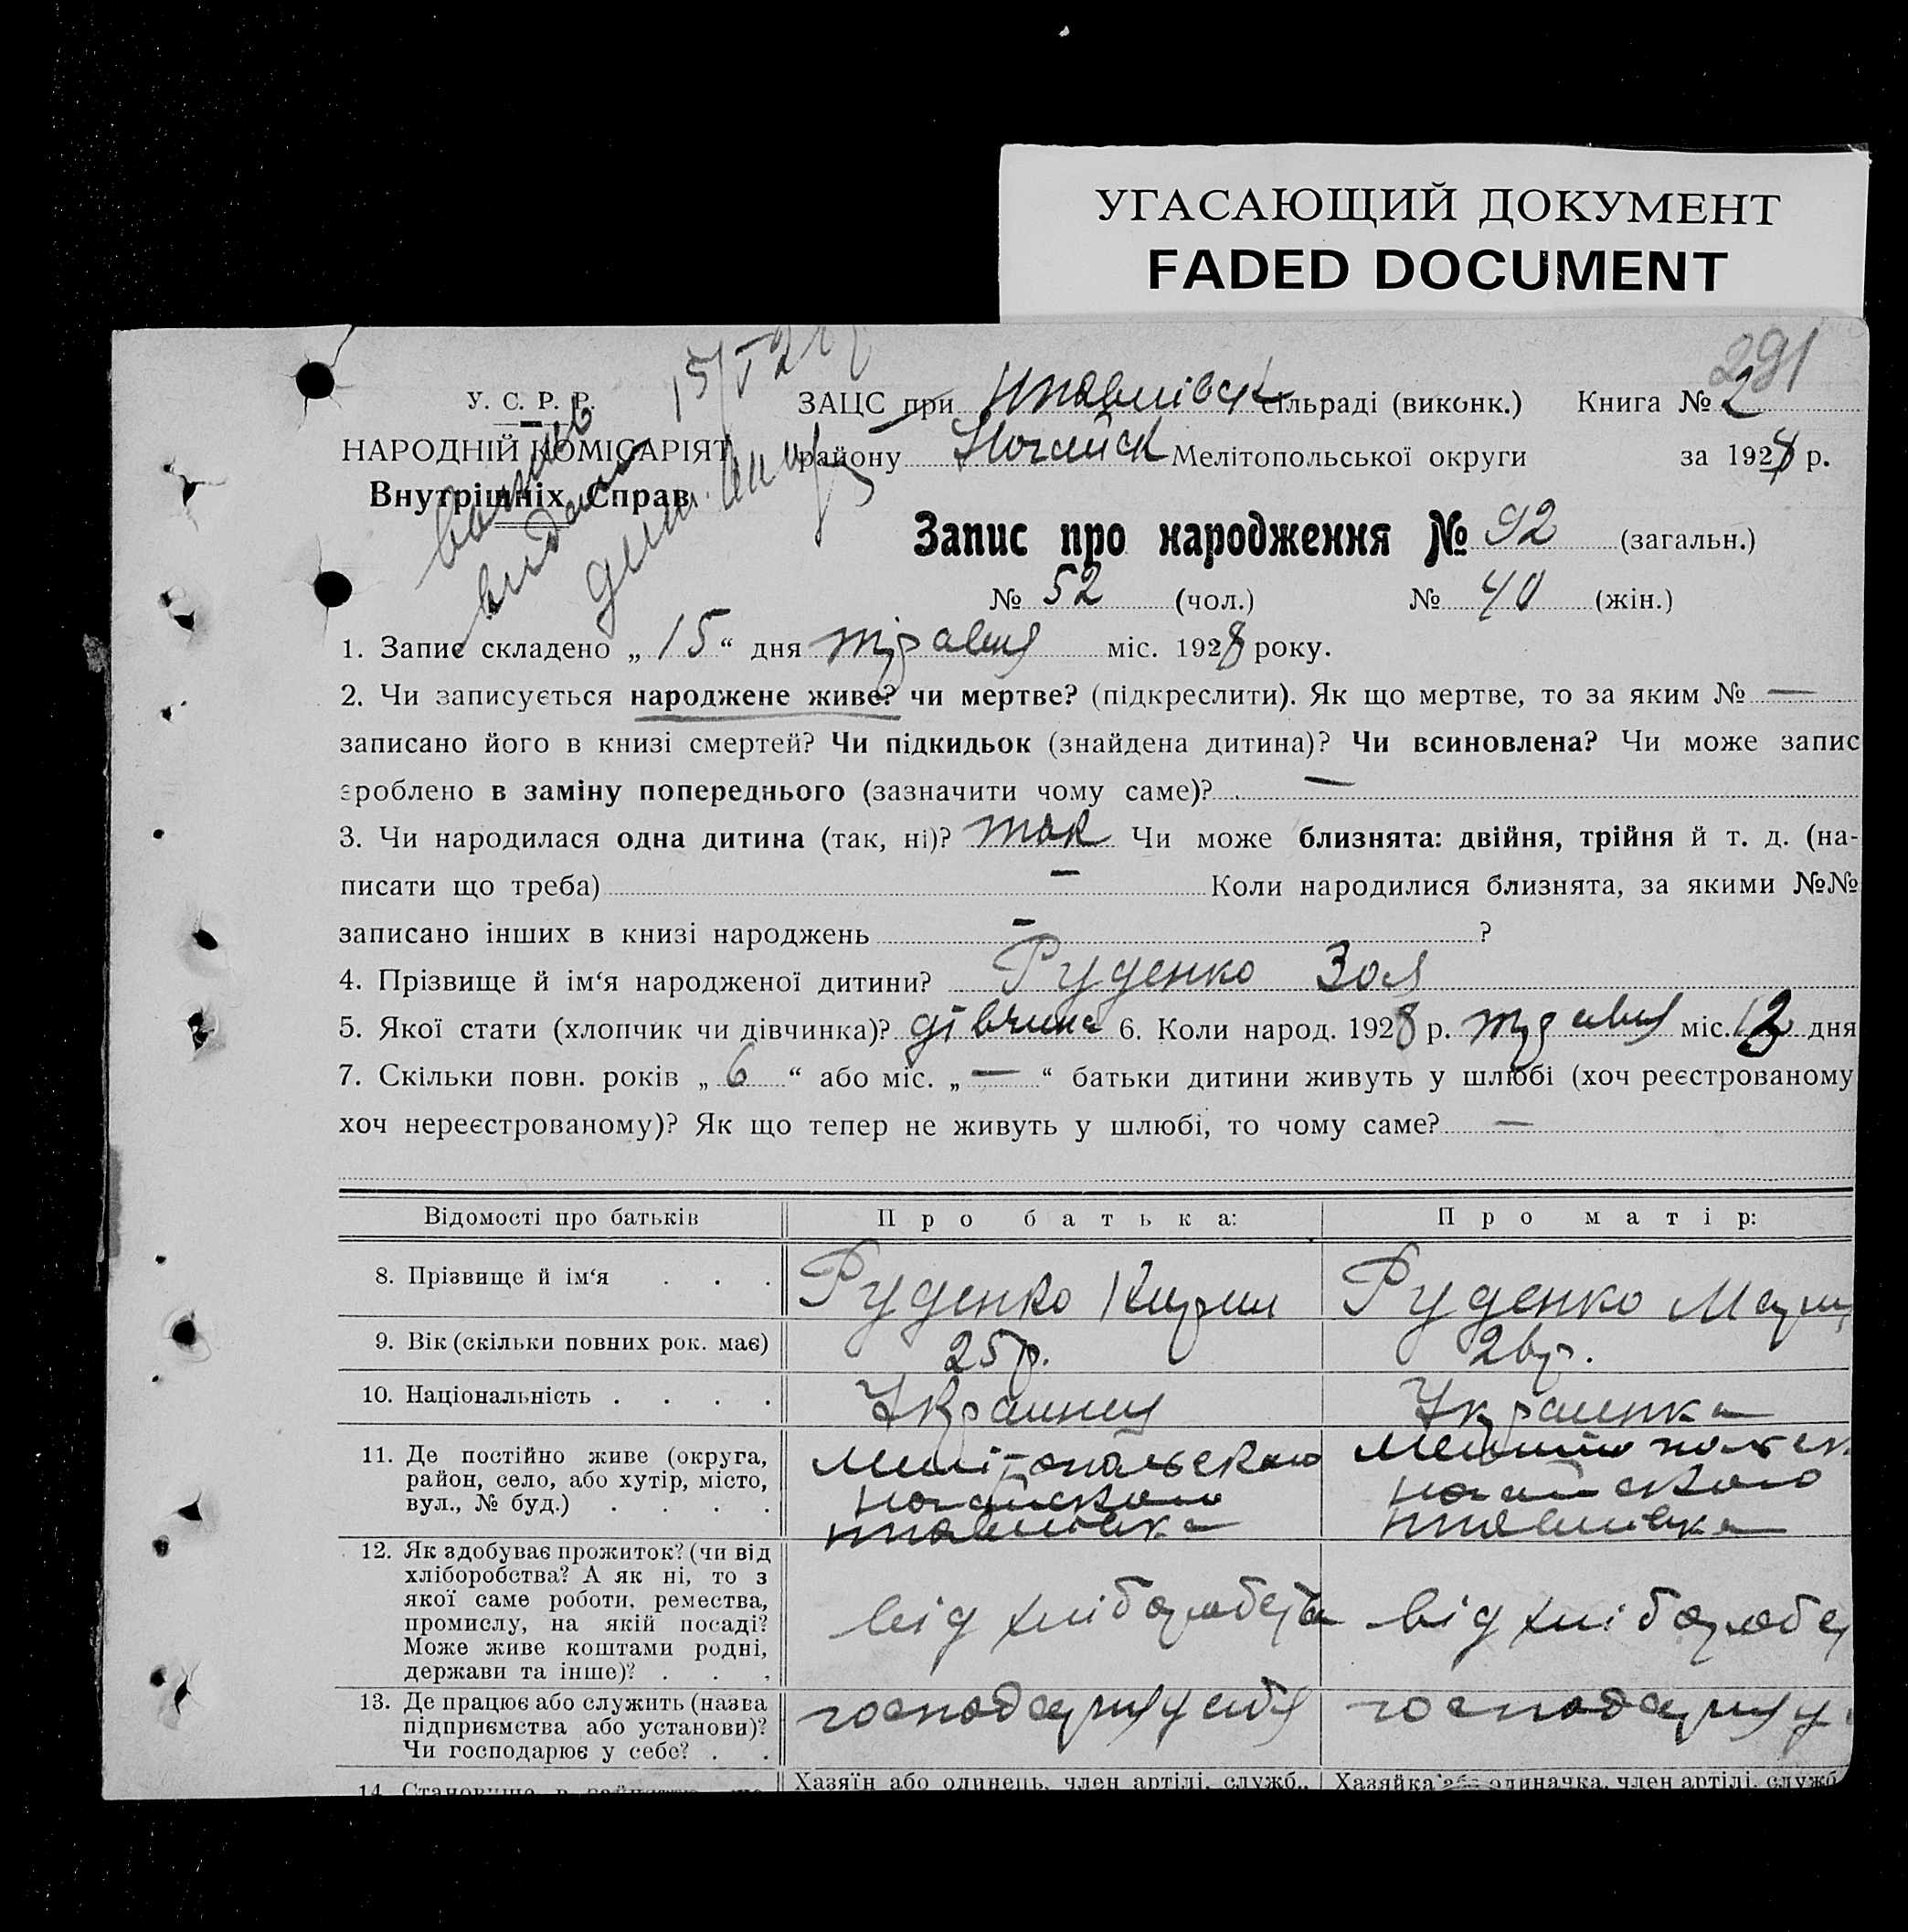 УГАСАЮЩИЙ ДОКУМЕНТ
FADED DOCUMENT
291
У. С. Р. Р.
НАРОДНІЙ КОМІСАРІЯТ
Внутрішніх Справ
ЗАЦС при сільраді (виконк.) Книга № 2
району Ногайск Мелітопольської округи за 1928 р.
Запис про народження № 92 (загальн.)
№ 52 (чол.) № 40 (жін.)
1. Запис складено „ 15 “ дня травня міс. 1928 року.
2. Чи записується народжене живе? чи мертве? (підкреслити). Як що мертве, то за яким № —
записано його в книзі смертей? Чи підкидьок (знайдена дитина)? Чи всиновлена? Чи може запис
зроблено в заміну попереднього (зазначити чому саме)? —
3. Чи народилася одна дитина (так, ні)? так Чи може близнята: двійня, трійня й т. д. (на-
писати що треба) — Коли народилися близнята, за якими №№
записано інших в книзі народжень — ?
4. Прізвище й ім‘я народженої дитини? Руденко Зоя
5. Якої стати (хлопчик чи дівчинка)? дівчина 6. Коли народ. 1928 р. травня міс. 12 дня
7. Скільки повн. років „ 6 “ або міс. „ — “ батьки дитини живуть у шлюбі (хоч реєстрованому
хоч нереєстрованому)? Як що тепер не живуть у шлюбі, то чому саме? —
Відомості про батьків Про батька: Про матір:
8. Прізвище й ім‘я . . . Руденко Кирил Руденко Мария
9. Вік (скільки повних рок. має) 25 р. 26 р.
10. Національність . . . . Українец Українка
11. Де постійно живе (округа,
район, село, або хутір, місто,
вул., № буд.) . . . .
Мелітопольского
ногайского
12. Як здобуває прожиток? (чи від
хліборобства? А як ні, то з
якої саме роботи, ремества,
промислу, на якій посаді?
Може живе коштами родні,
держави та інше)? . . .
від хліборобств від хліборобс
13. Де працює або служить (назва
підприємства або установи)?
Чи господарює у себе? . .
господарює у себя господарює у
14. Становище в
Хазяїн або одинець, член артілі, служб., Хазяйка або одиначка, член артілі, служб